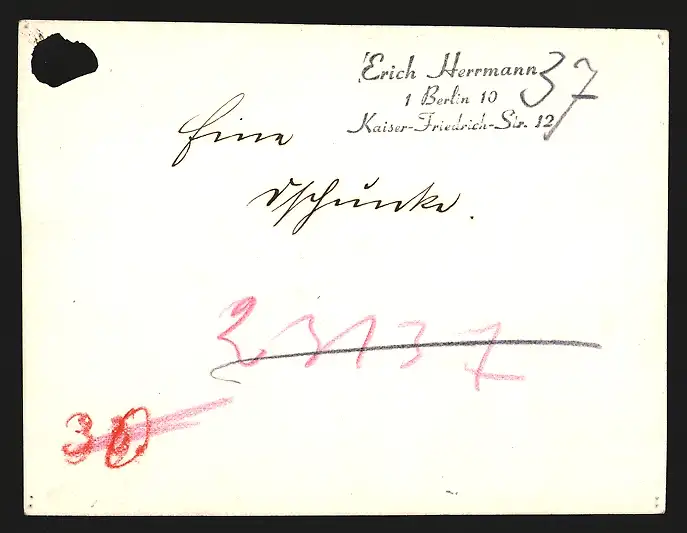 Erich Herrmann
1 Berlin 10
Kaiser-Friedrich-Str. 12
37
Eine
Dschunke.
23137